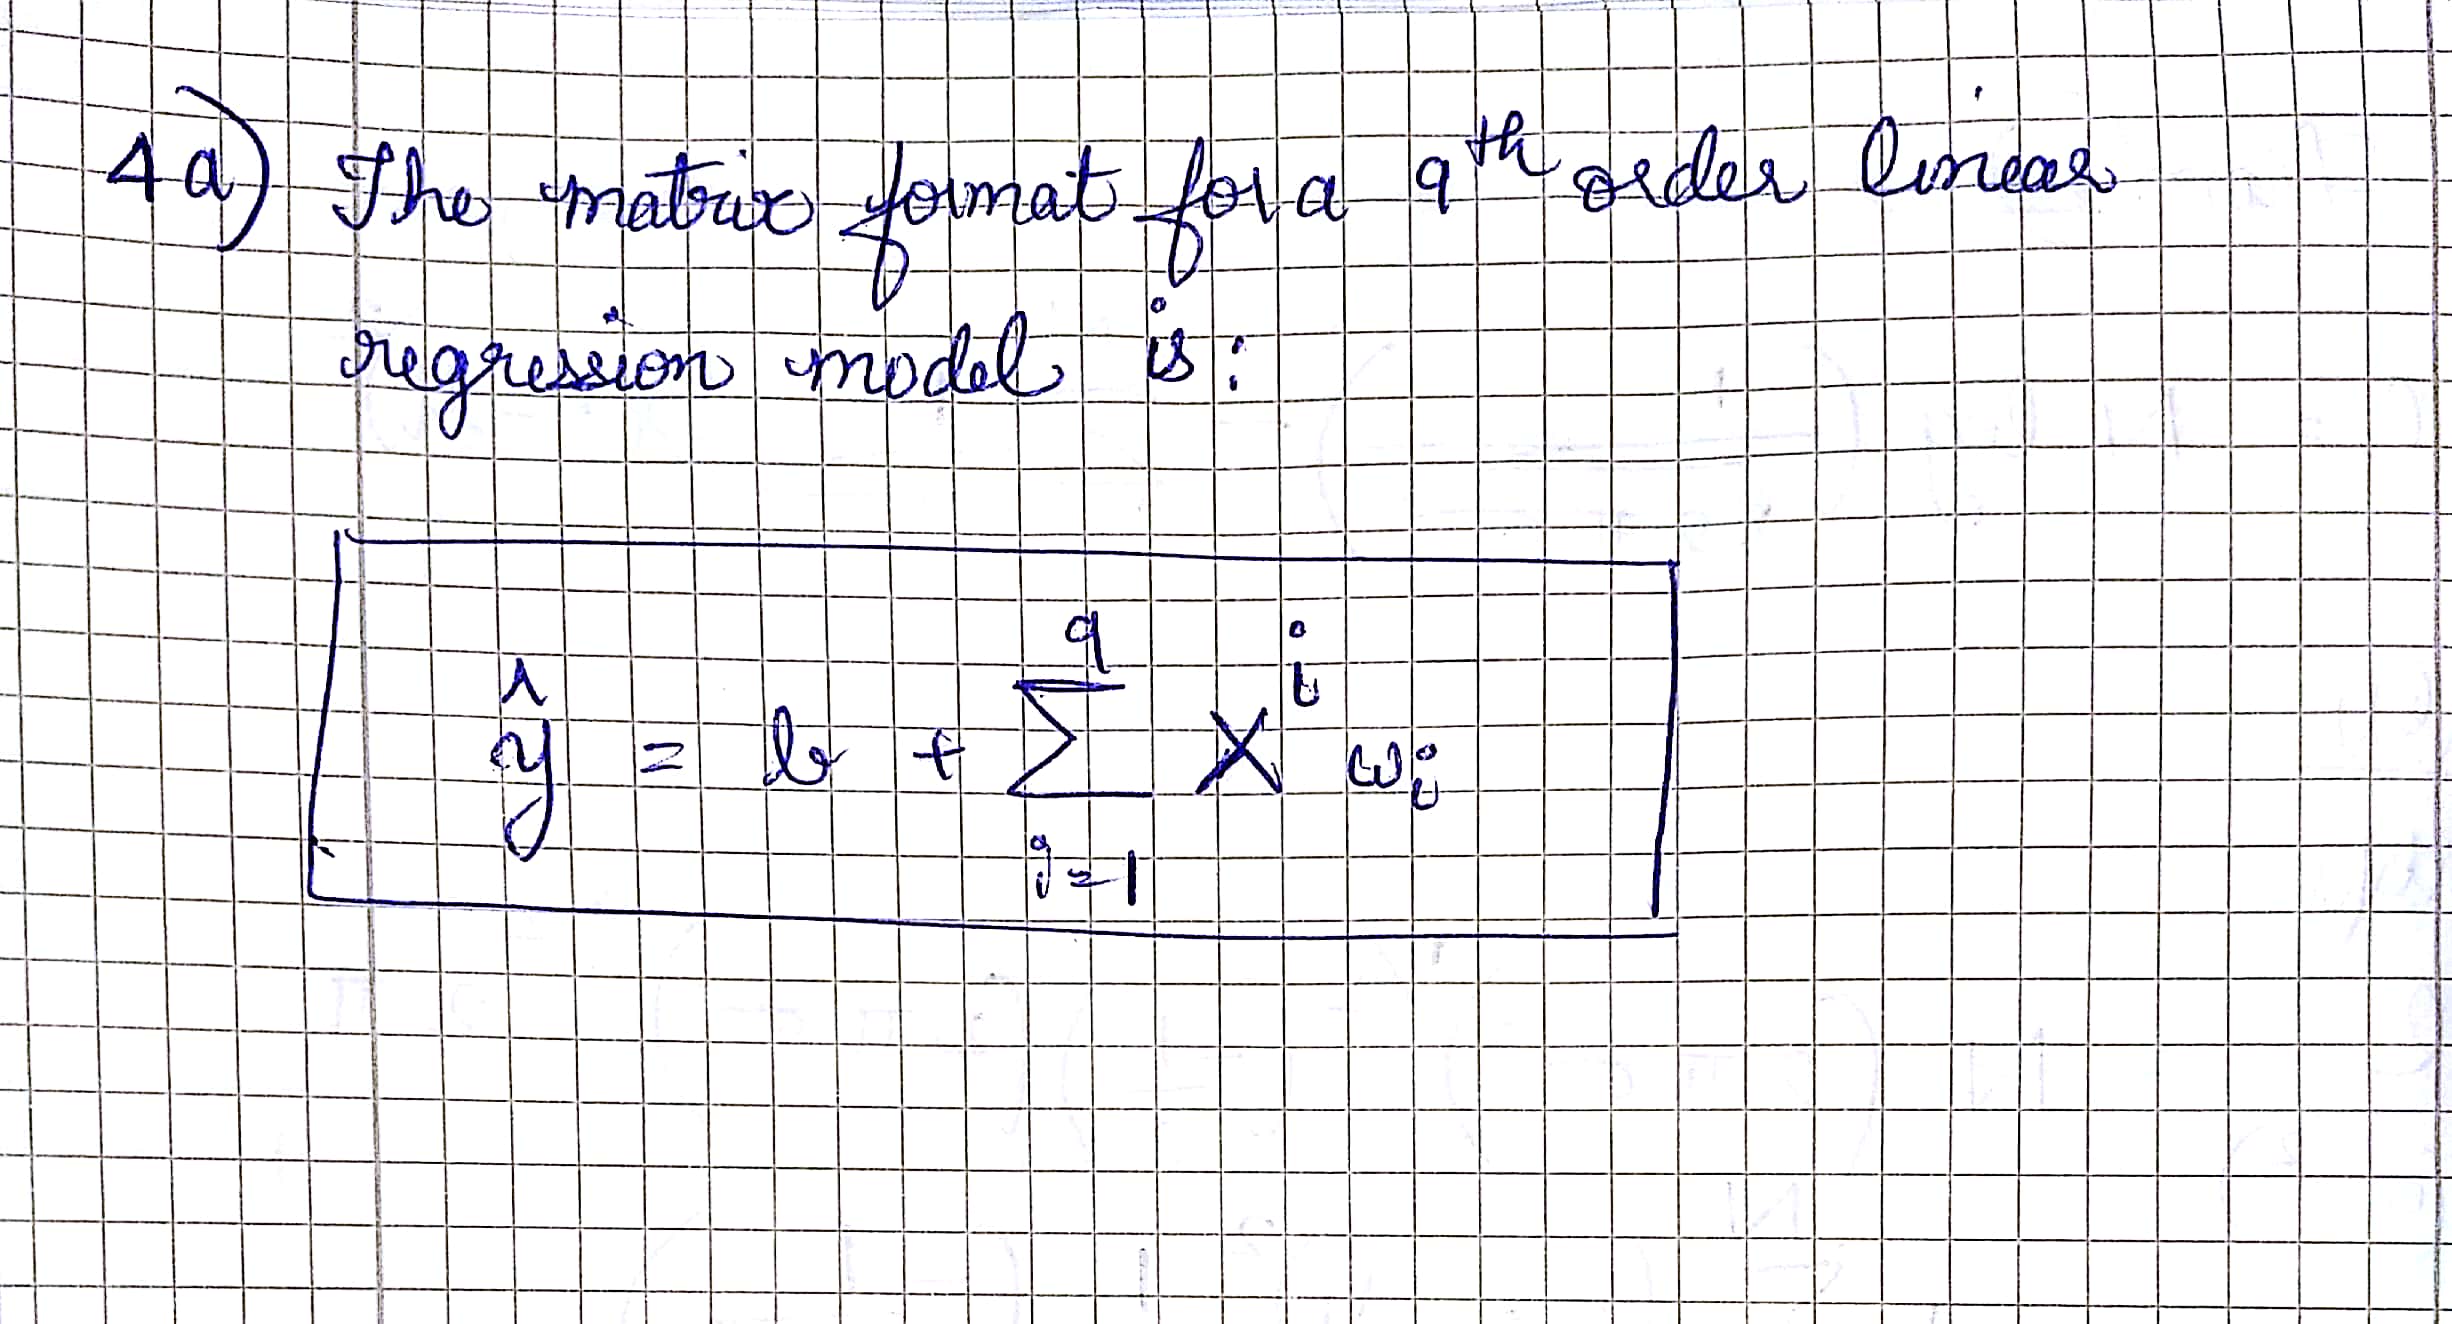 4a) The matrix format for a 9th order linear
regression model is:
ŷ = b + ∑_{i=1}^{9} X^i ω_i